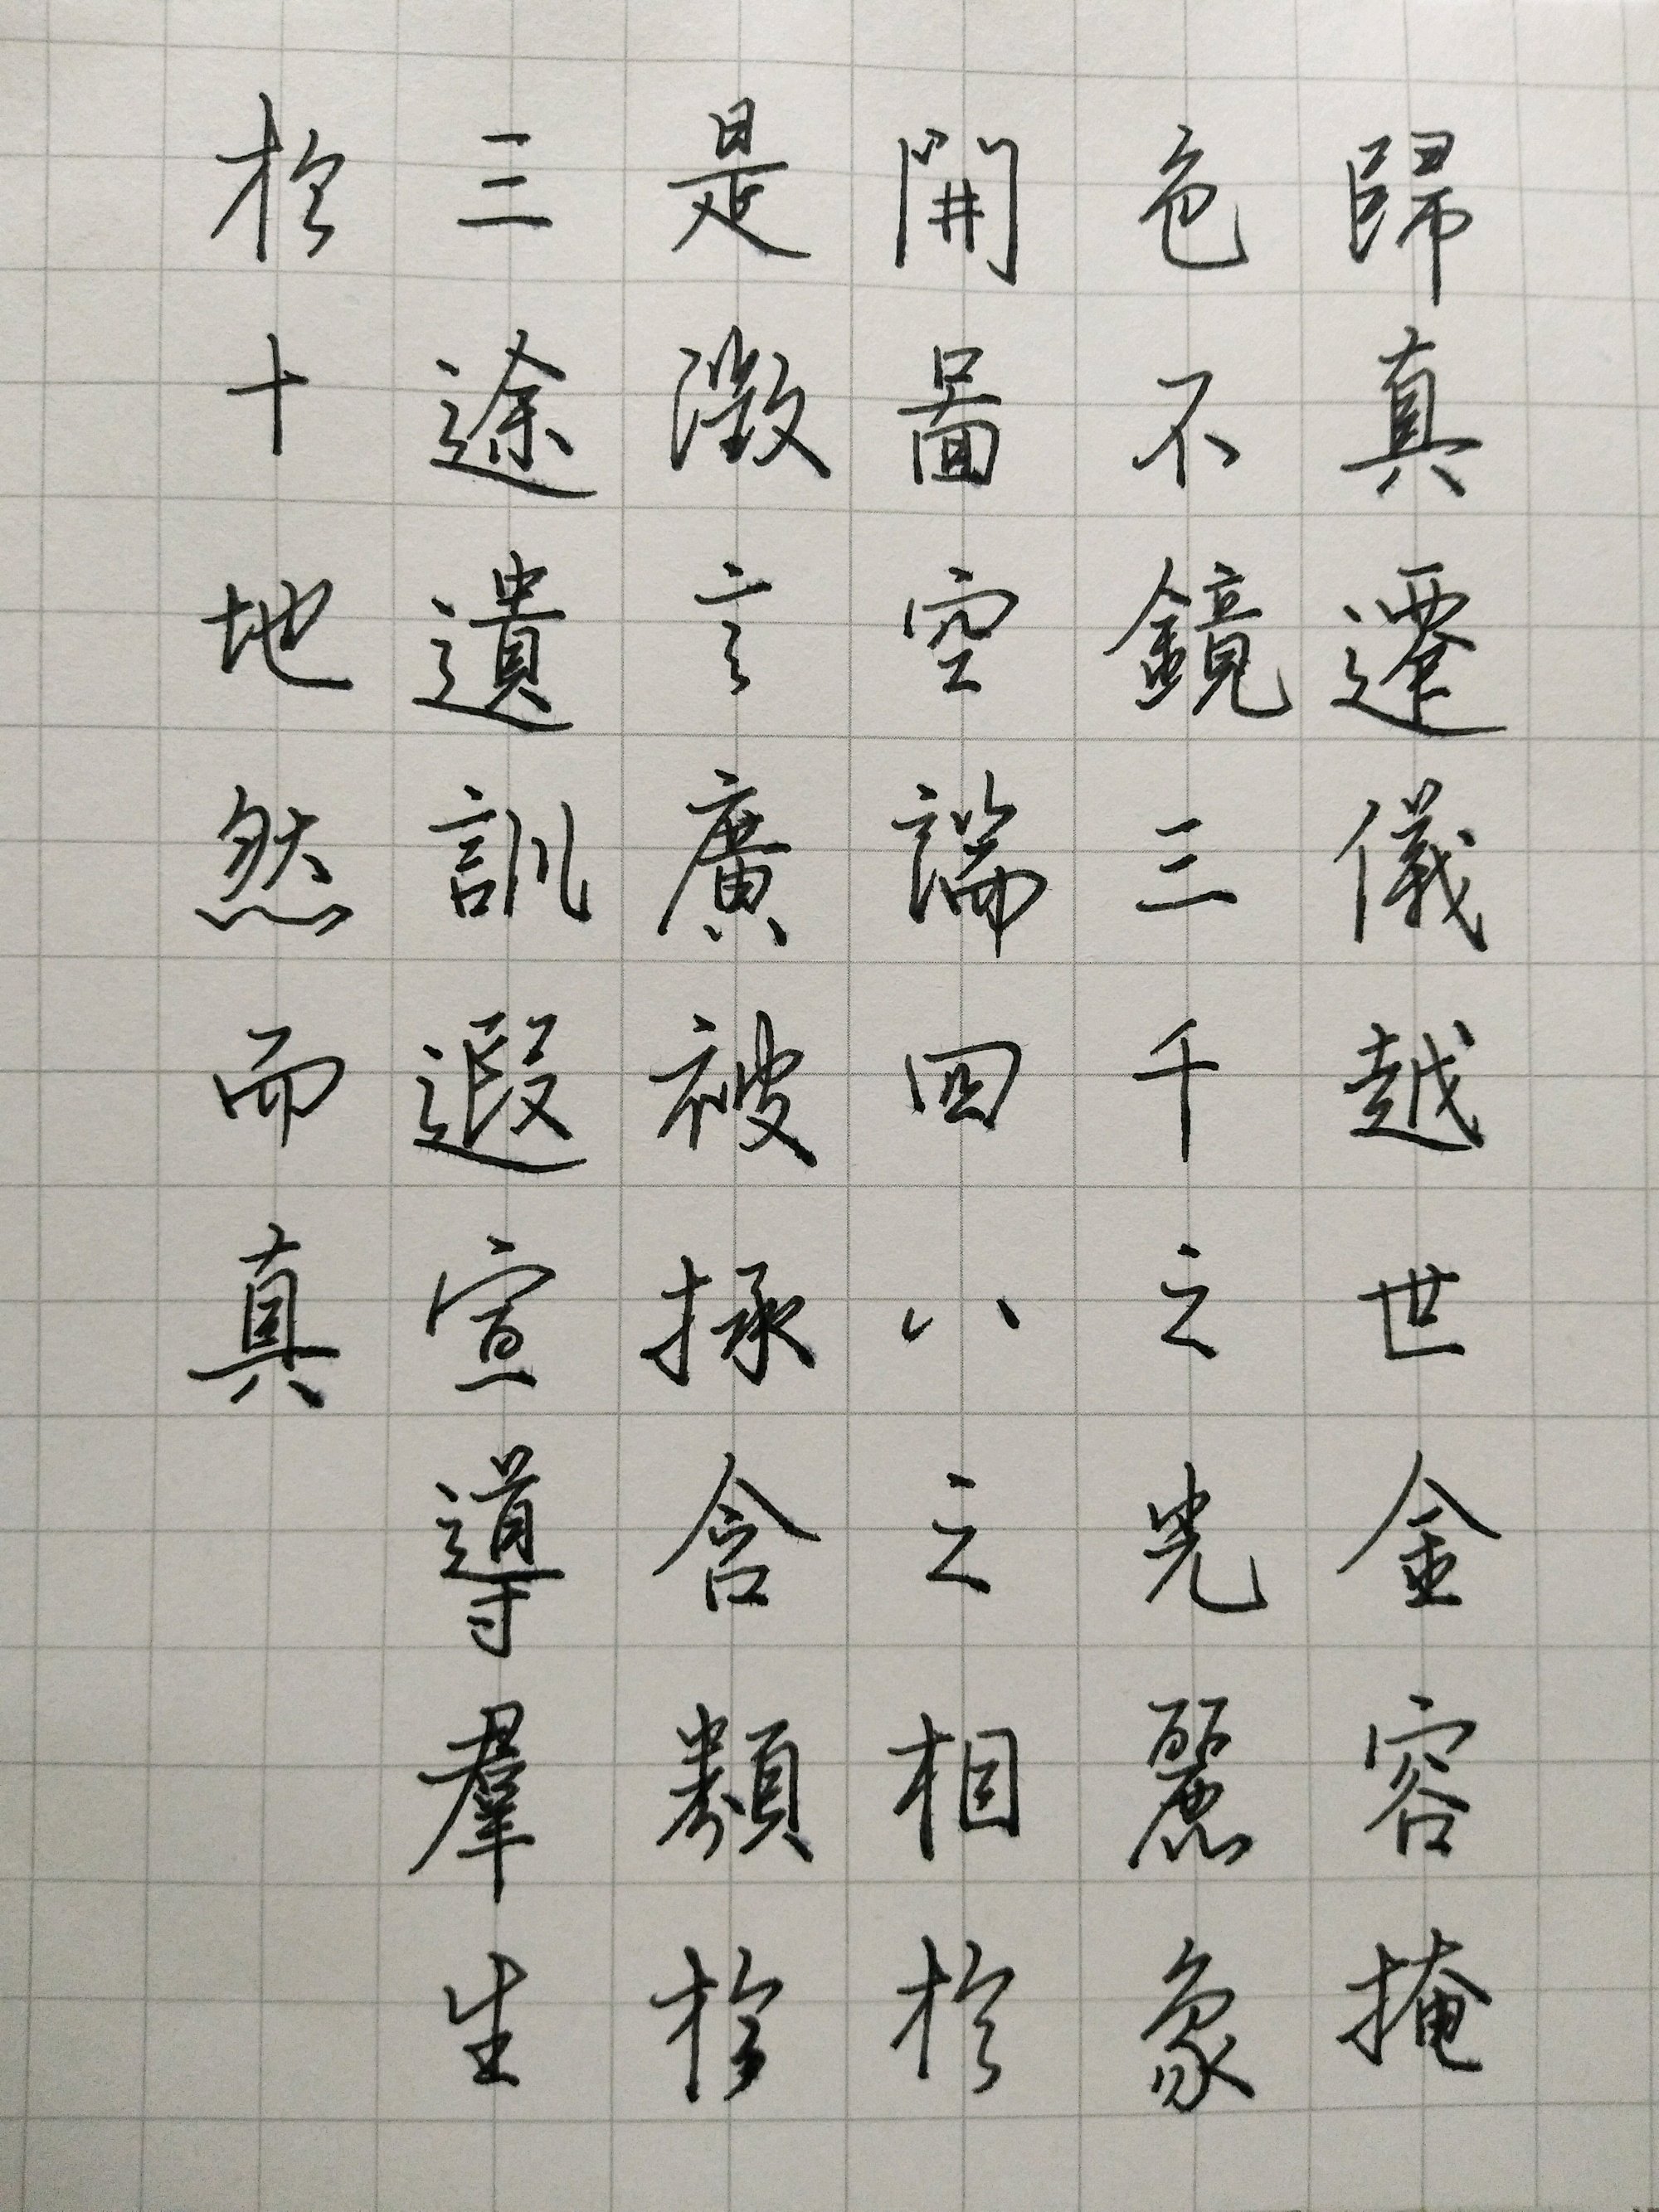 歸真遷儀越世金容掩
色不鏡三千之光麗象
開啚空端四八之相於
是微言廣被拯含類於
三途遺訓遐宣導羣生
於十地然而真